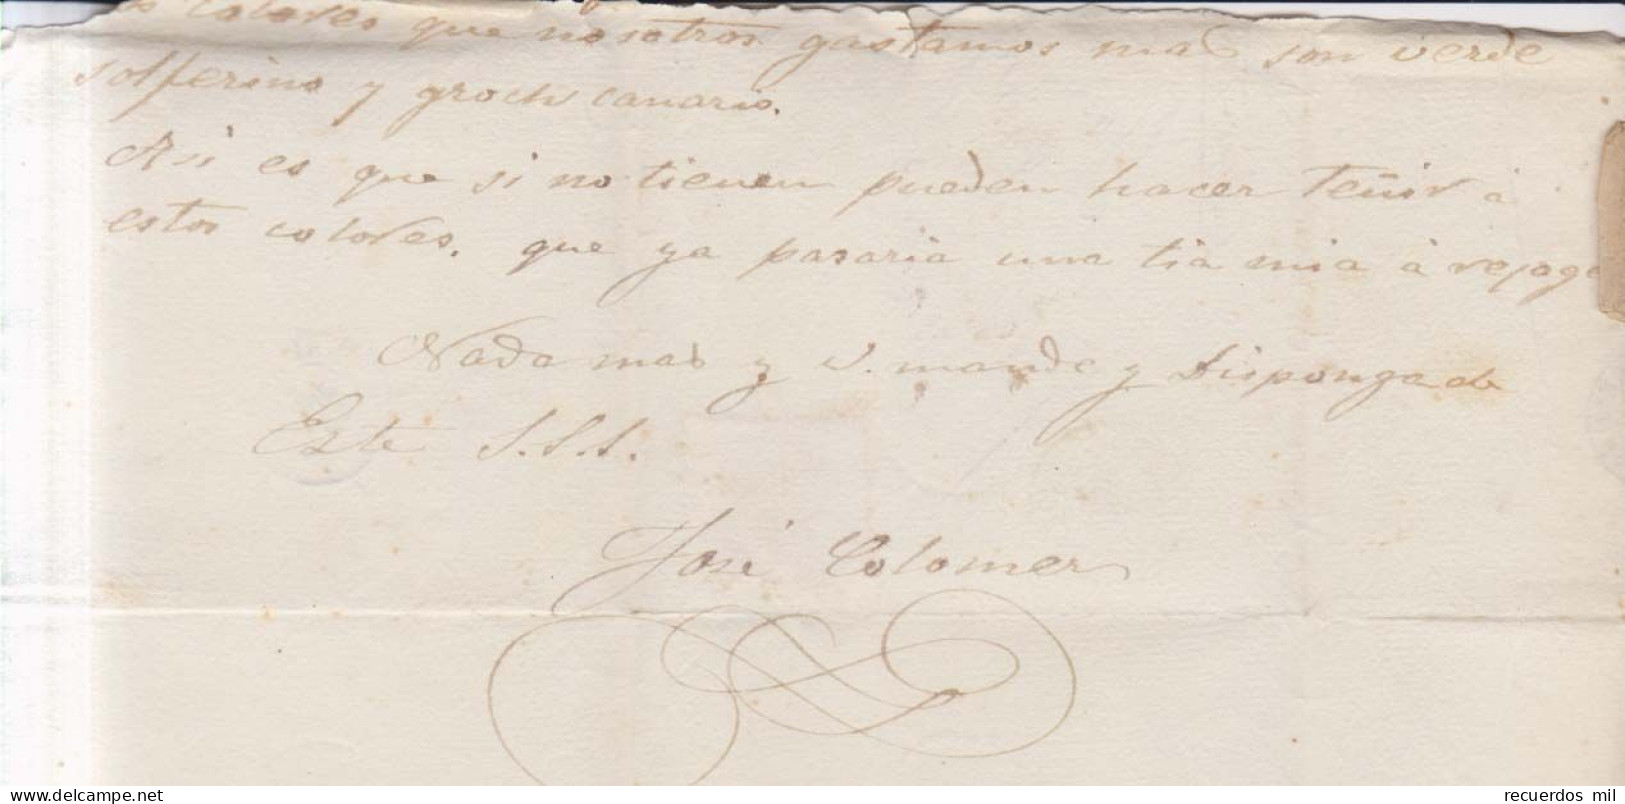 colores que nosotros gastamos mas son verde
solferino y groch canario.
Asi es que si no tienen pueden hacer teñir à
estos colores. que ya pasaria una tia mia à
Nada mas y V. mande y disponga de
Este S.S.S.
José Colomer
recuerdos mil